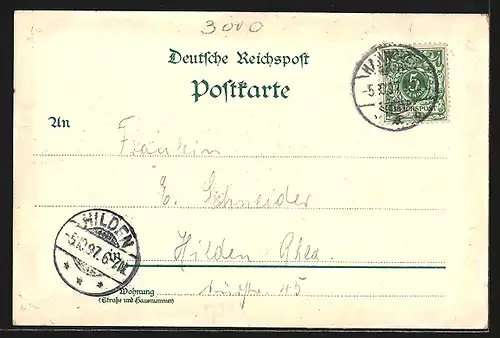 3000
Deutsche Reichspost
Postkarte
An
Fräulein
E. Schneider
Hilden Rhld.
45
Wohnung
(Straße und Hausnummer)
HILDEN
-5.10.97. 6-7N.
-5.10.97
5
REICHSPOST